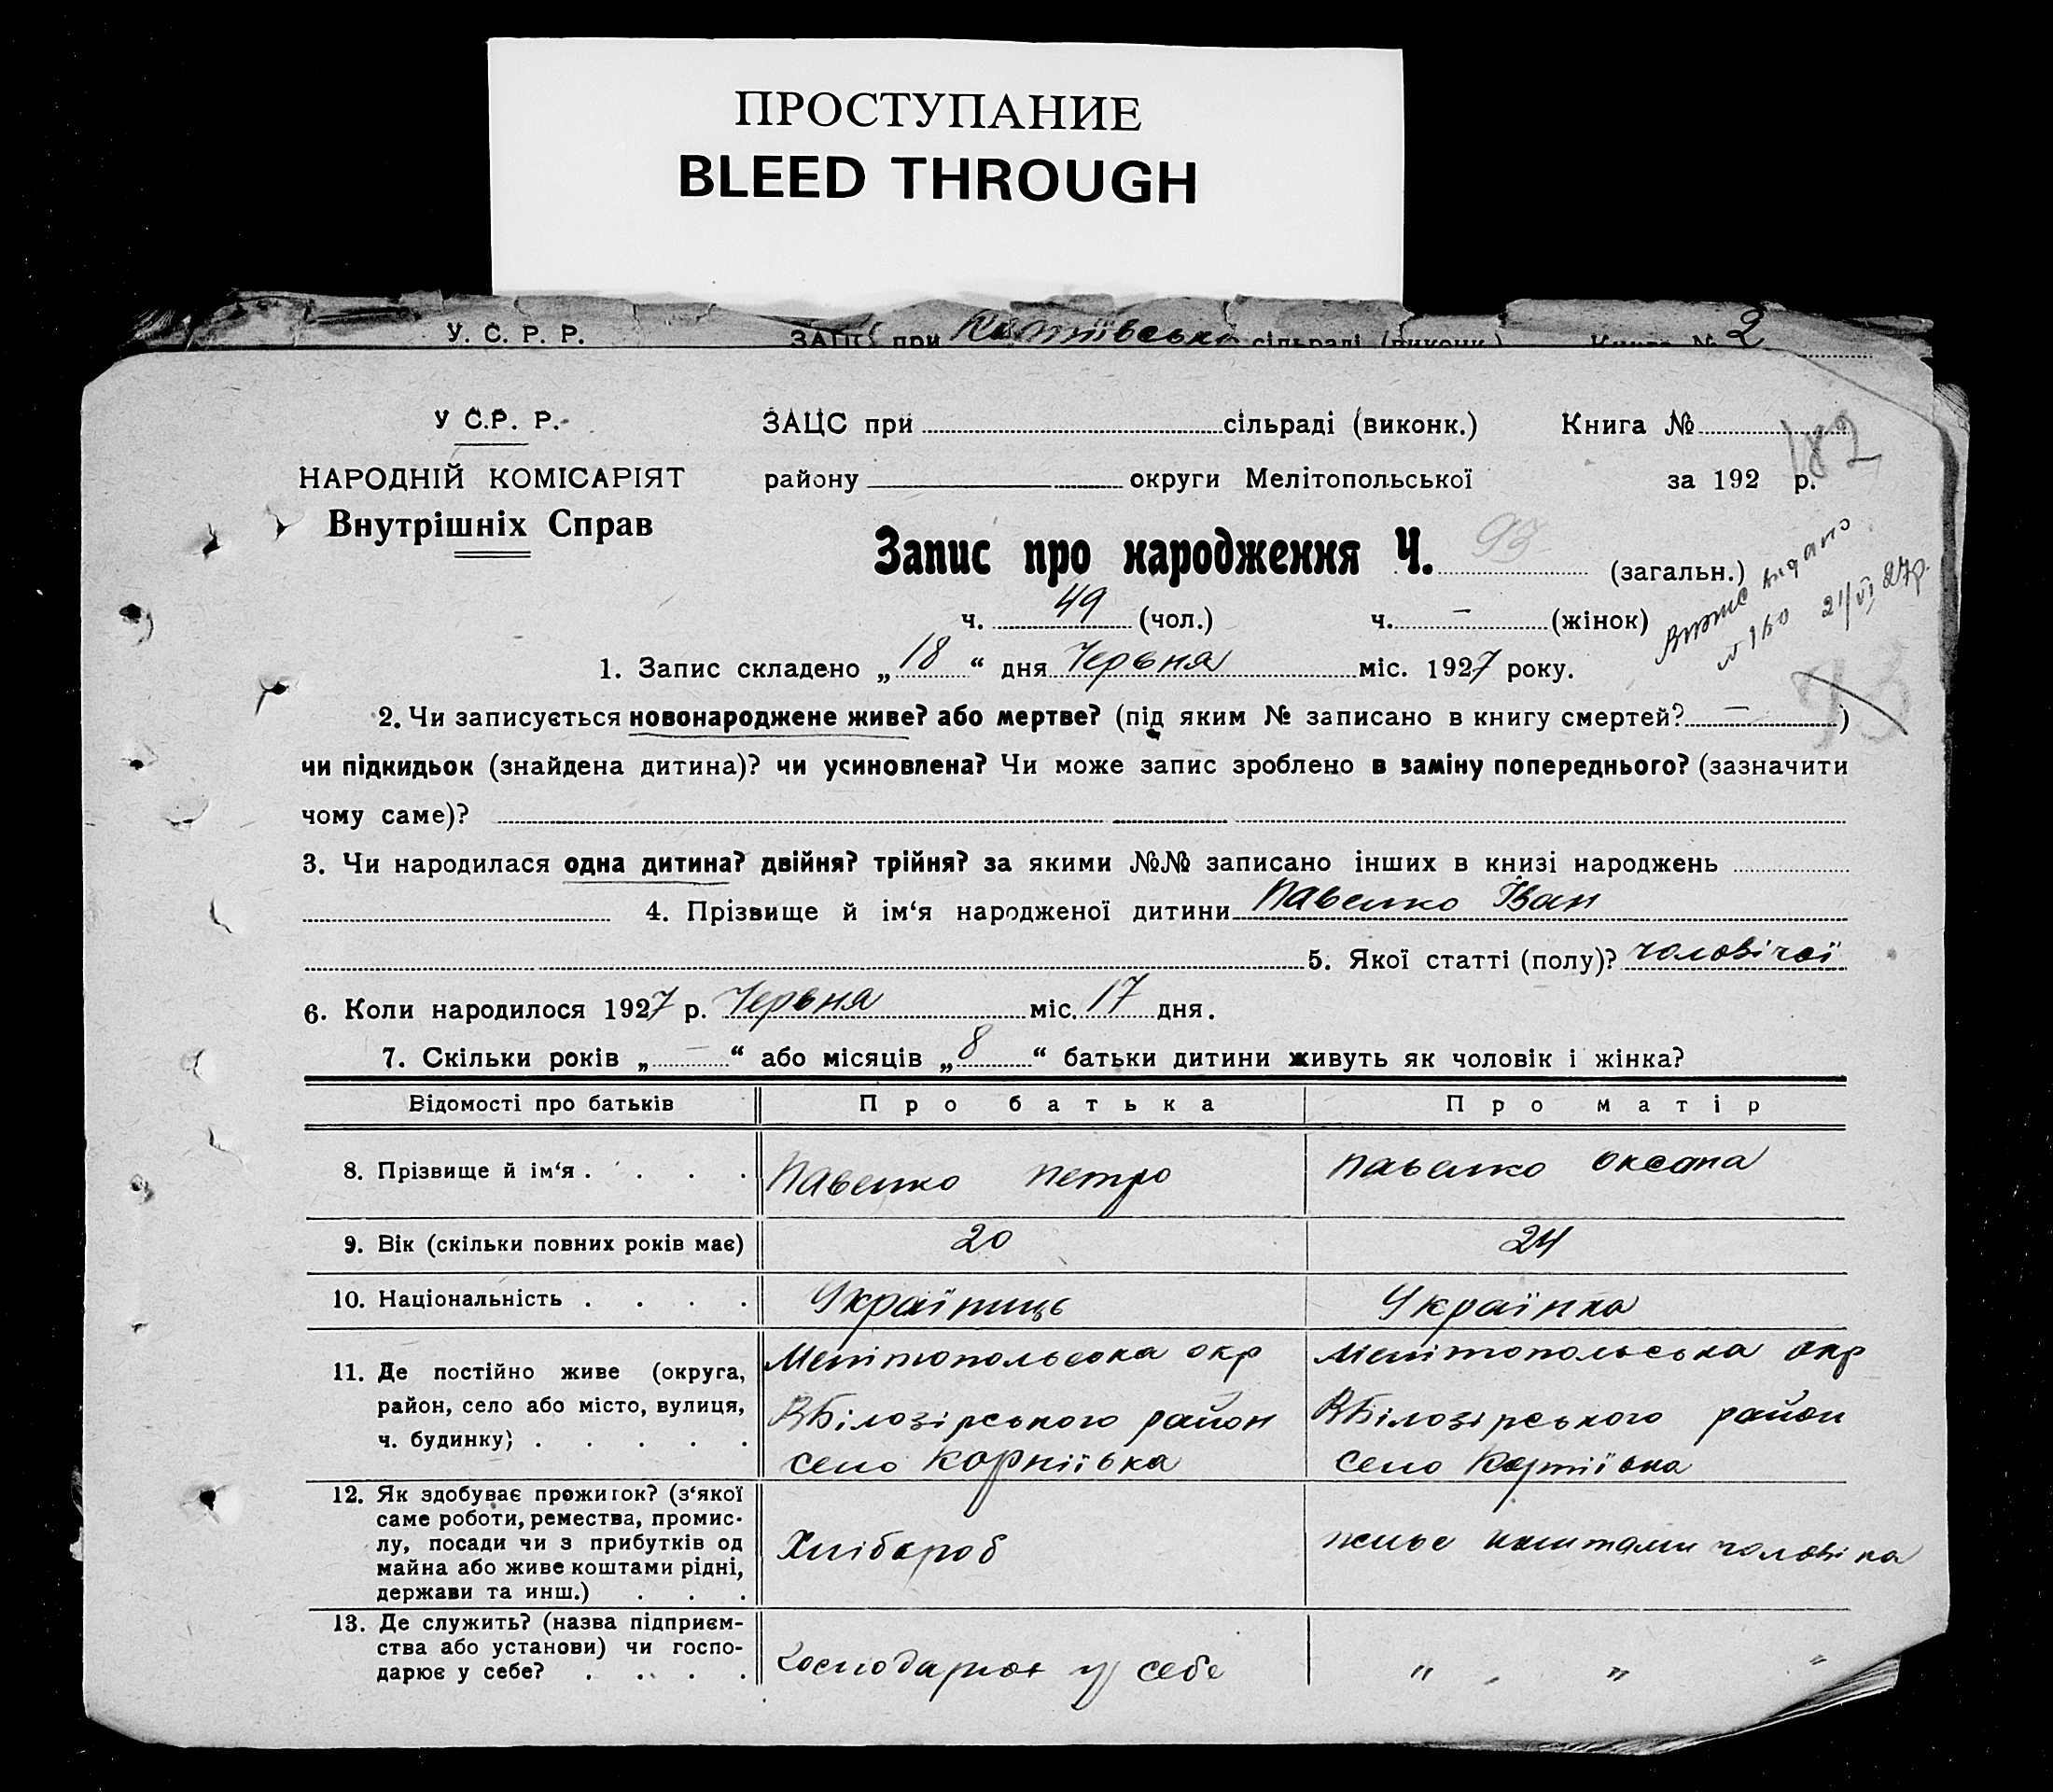 ПРОСТУПАНИЕ
BLEED THROUGH
У. С. Р. Р. ЗАЦС при сільраді (виконк.) Книга № 2
У С.Р. Р. ЗАЦС при сільраді (виконк.) Книга №
182
НАРОДНІЙ КОМІСАРІЯТ району округи Мелітопольської за 192 р.
Внутрішніх Справ
Запис про народження Ч. 93 (загальн.)
ч. 49 (чол.) ч. — (жінок)
Витис видано
21/VI 27р.
1. Запис складено „ 18 “ дня Червня міс. 1927 року.
93
2. Чи записується новонароджене живе? або мертве? (під яким № записано в книгу смертей? — )
чи підкидьок (знайдена дитина)? чи усиновлена? Чи може запис зроблено в заміну попереднього? (зазначити
чому саме)?
3. Чи народилася одна дитина? двійня? трійня? за якими №№ записано інших в книзі народжень
4. Прізвище й ім‘я народженої дитини Павелко Іван
5. Якої статті (полу)? чоловічої
6. Коли народилося 1927 р. Червня міс. 17 дня.
7. Скільки років „ — “ або місяців „ 8 “ батьки дитини живуть як чоловік і жінка?
Відомості про батьків Про батька Про матір
8. Прізвище й ім‘я . . . . Павелко Петро Павелко Оксана
9. Вік (скільки повних років має) 20 24
10. Національність . . . . Українць Українка
11. Де постійно живе (округа, Мелітопольська окр Мелітопольська окр
район, село або місто, вулиця, ВБілозірського район ВБілозірського район
ч. будинку) . . . . . село Корніївка село Корніївка
12. Як здобуває прожиток? (з‘якої
саме роботи, ремества, промис-
лу, посади чи з прибутків од Хлібороб живе коштами чоловіка
майна або живе коштами рідні,
держави та инш.) . . .
13. Де служить? (назва підприєм-
ства або установи) чи госпо-
дарює у себе? . . . . Господарює у себе " " "